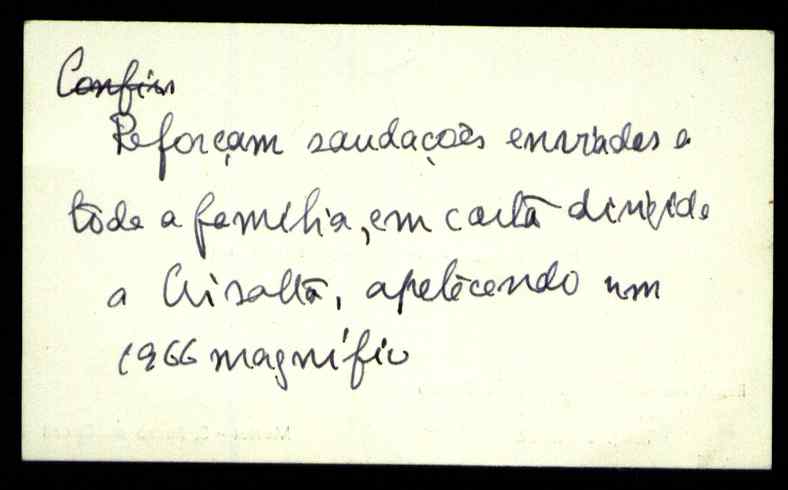 Confir
Reforçam saudações enviadas a
tôda a família, em carta dirigida
a Crisalta, apetecendo um
1966 magnífico